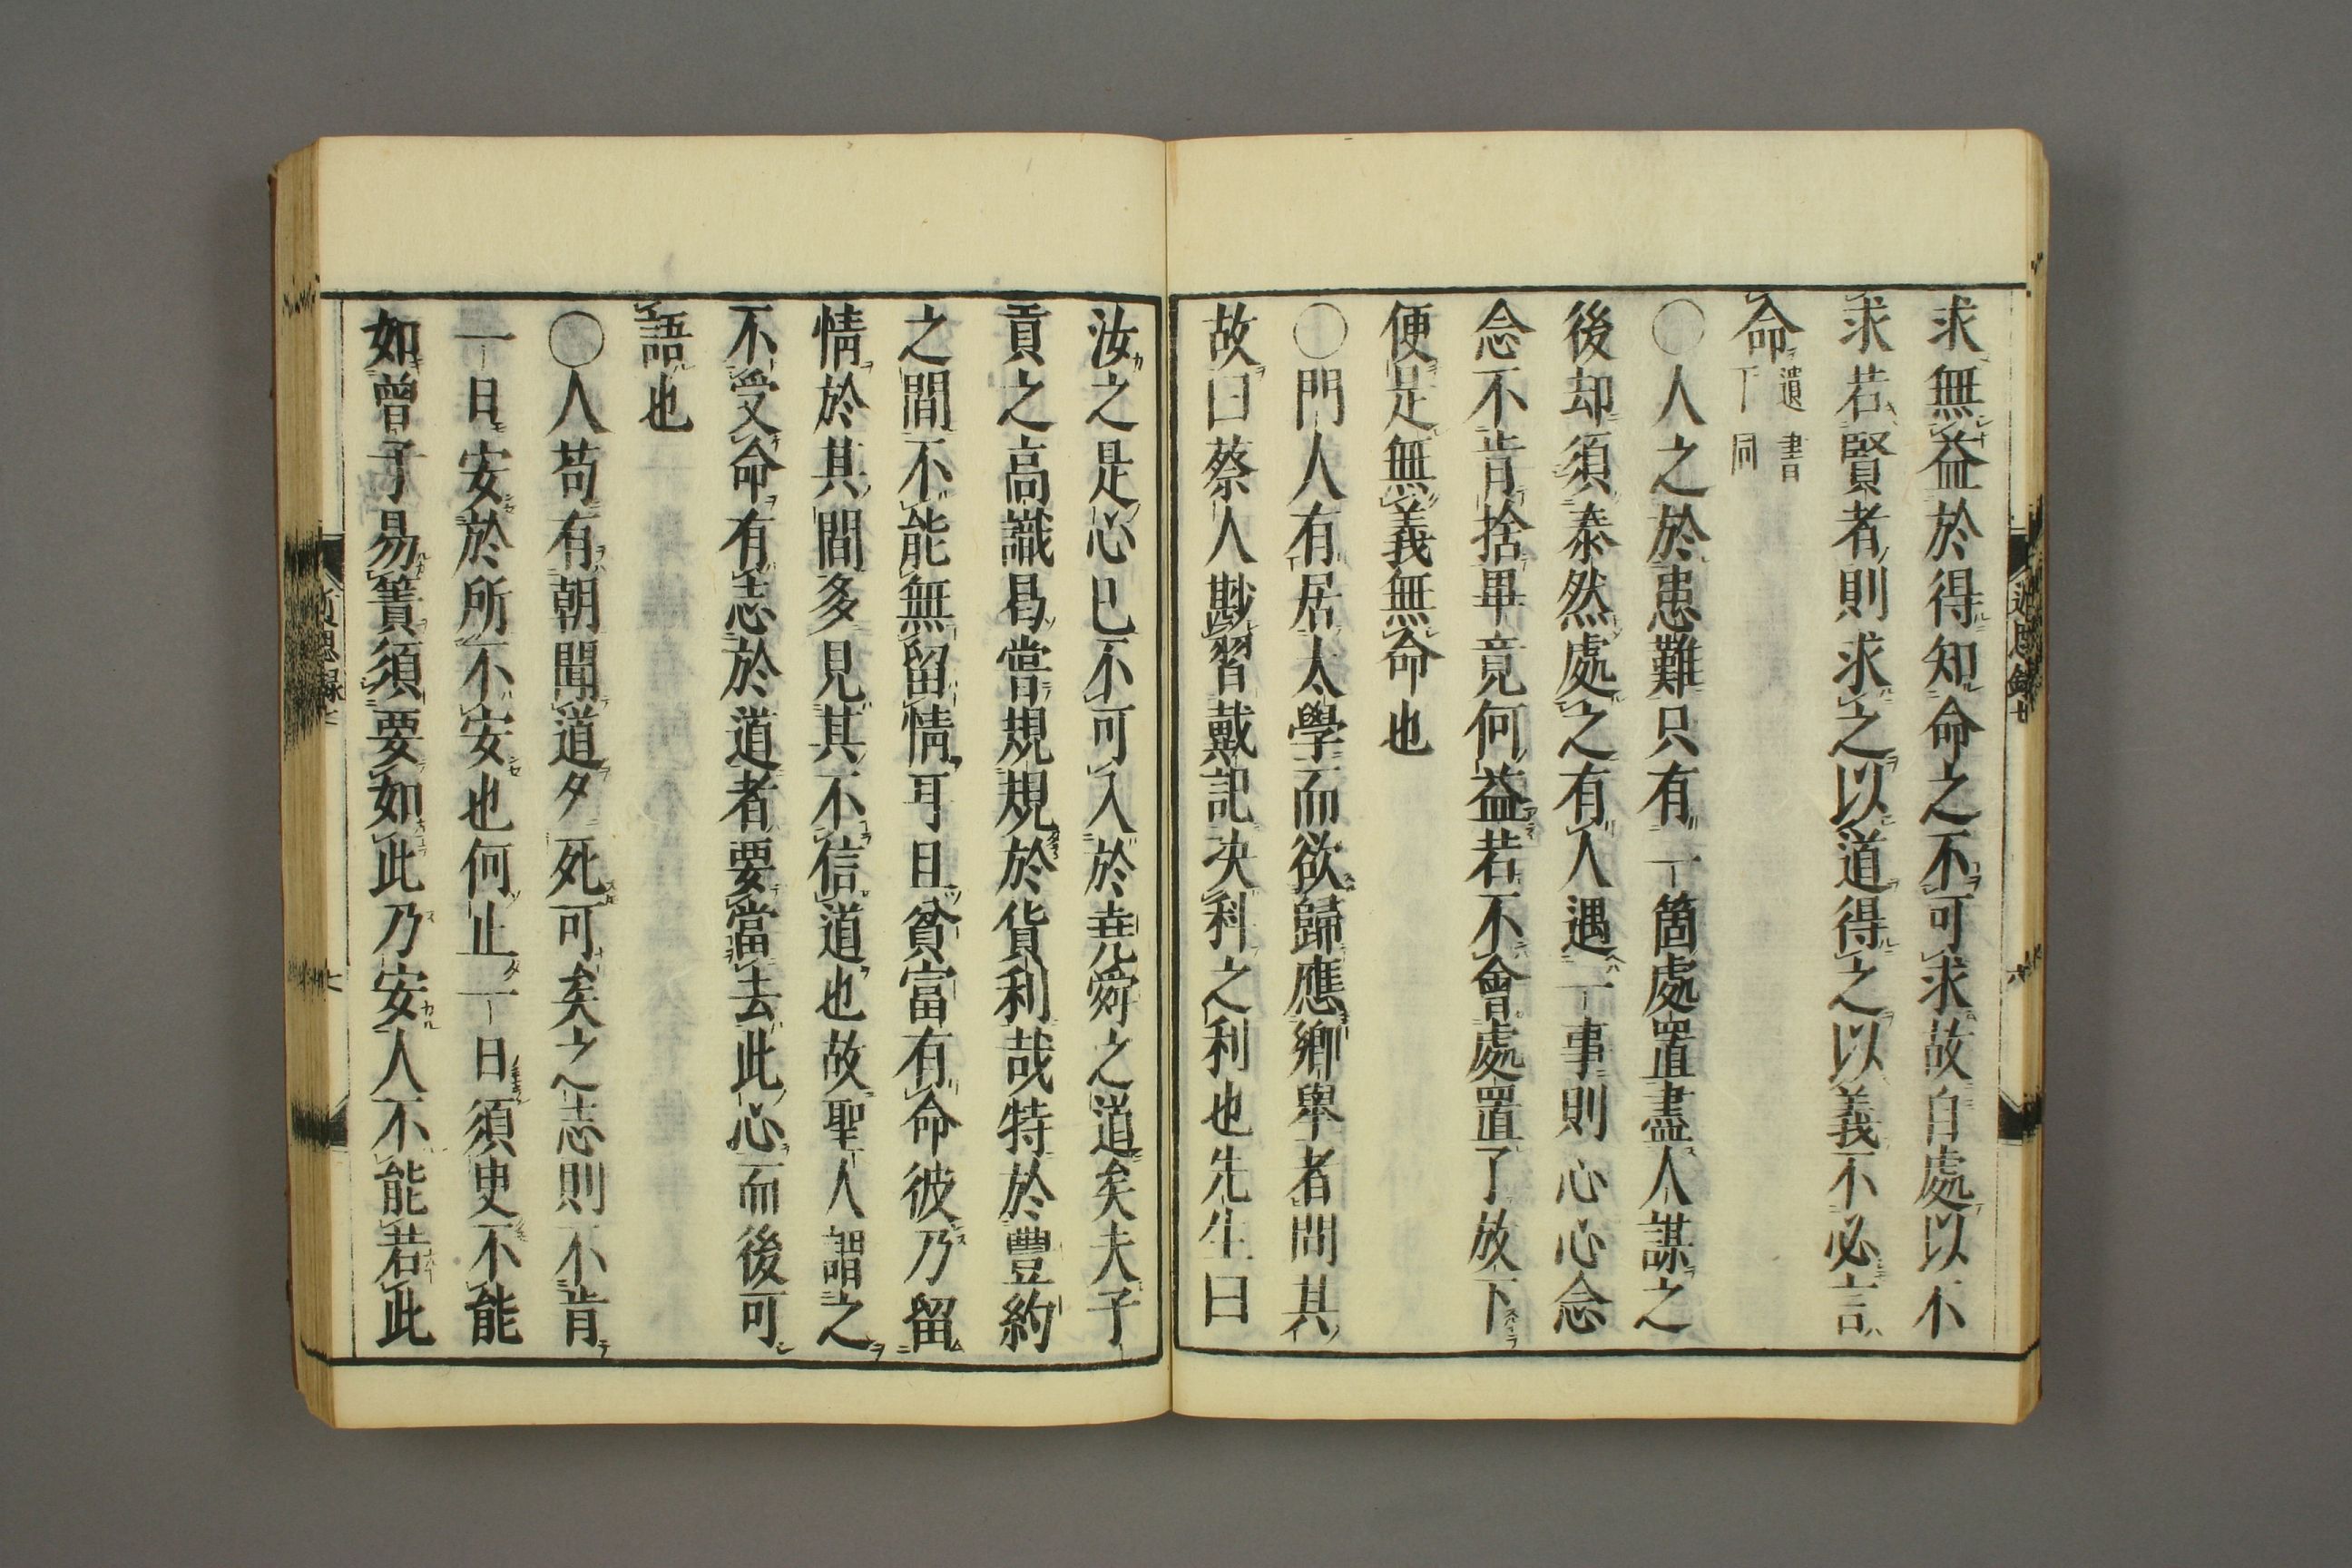 求無益於得知命之不可求故自處以不
求若賢者則求之以道得之以義不必言
命遺書下同
○人之於患難只有一箇處置盡人謀之
後却須泰然處之有人遇一事則心心念
念不肯捨畢竟何益若不會處置了放下
便是無義無命也
○門人有居太學而欲歸應鄉舉者問其
故曰蔡人尠習戴記决科之利也先生曰
汝之是心已不可入於堯舜之道矣夫子
貢之高識曷嘗規規於貨利哉特於豐約
之間不能無留情耳且貧富有命彼乃留
情於其間多見其不信道也故聖人謂之
不受命有志於道者要當去此心而後可
語也
○人苟有朝聞道夕死可矣之志則不肯
一日安於所不安也何止一日須臾不能
如曾子易簀須要如此乃安人不能若此
近思錄七
六
近思錄七
七